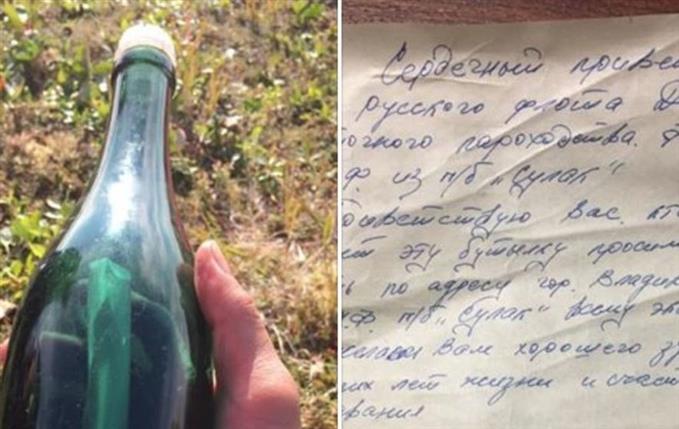 Сердечный привет
русского флота Д
точного пароходства.
из т/б „Сулак"
ветствую вас, кто
ет эту бутылку просим
по адресу гор. Владив
т/б „Сулак" всему эк
Вам хорошего з
их лет жизни и счаст